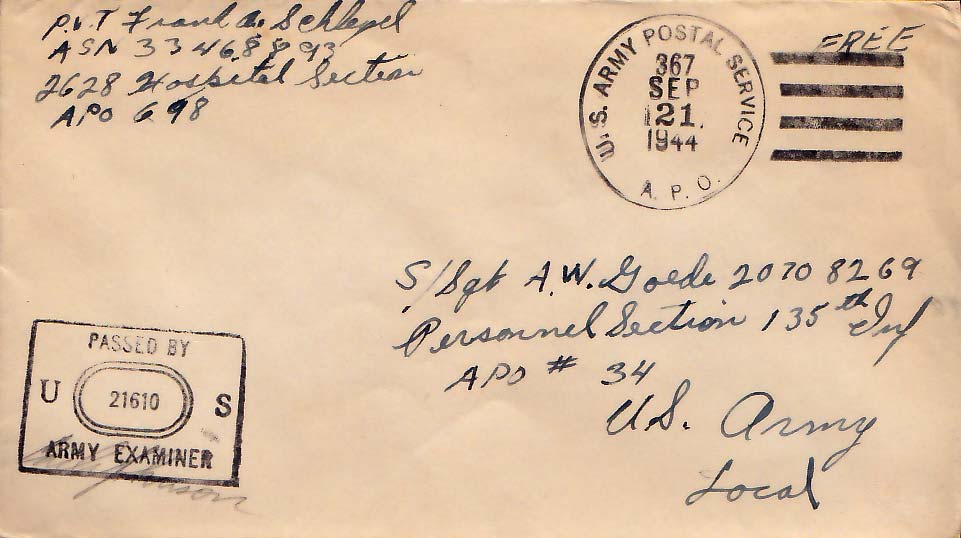 Pvt Frank A. Schlegel
ASN 33468893
2628 Hospital Section
APO 698
U.S. ARMY POSTAL SERVICE
367
SEP
21
1944
A.P.O.
FREE
S/Sgt A.W. Goede 20708269
Personnel Section 135th Inf
APO # 34
U.S. Army
Local
PASSED BY
U 21610 S
ARMY EXAMINER